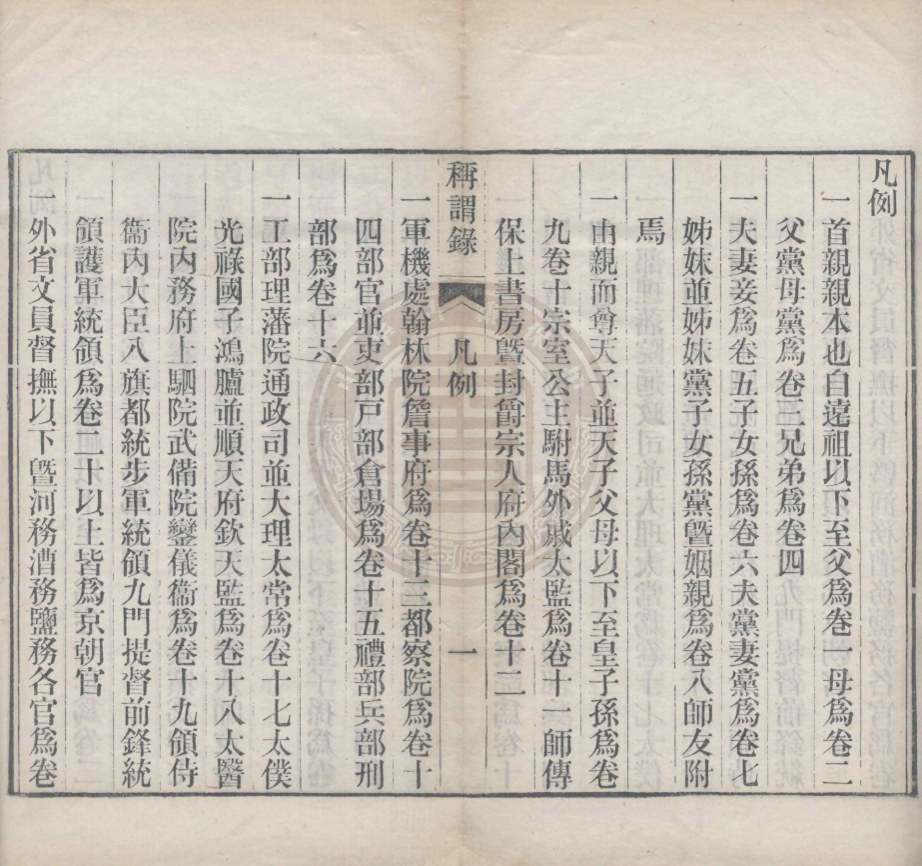 凡例
一首親親本也自遠祖以下至父爲卷一母爲卷二
父黨母黨爲卷三兄弟爲卷四
一夫妻妾爲卷五子女孫爲卷六夫黨妻黨爲卷七
姊妹並姊妹黨子女孫黨曁姻親爲卷八師友附
焉
一由親而尊天子並天子父母以下至皇子孫爲卷
九卷十宗室公主駙馬外戚太監爲卷十一師傅
保上書房曁封爵宗人府內閣爲卷十二
稱謂錄 凡例 一
一軍機處翰林院詹事府爲卷十三都察院爲卷十
四部官並吏部戸部倉場爲卷十五禮部兵部刑
部爲卷十六
一工部理藩院通政司並大理太常爲卷十七太僕
光祿國子鴻臚並順天府欽天監爲卷十八太醫
院內務府上駟院武備院鑾儀衞爲卷十九領侍
衞內大臣八旗都統步軍統領九門提督前鋒統
領護軍統領爲卷二十以上皆爲京朝官
一外省文員督撫以下曁河務漕務鹽務各官爲卷